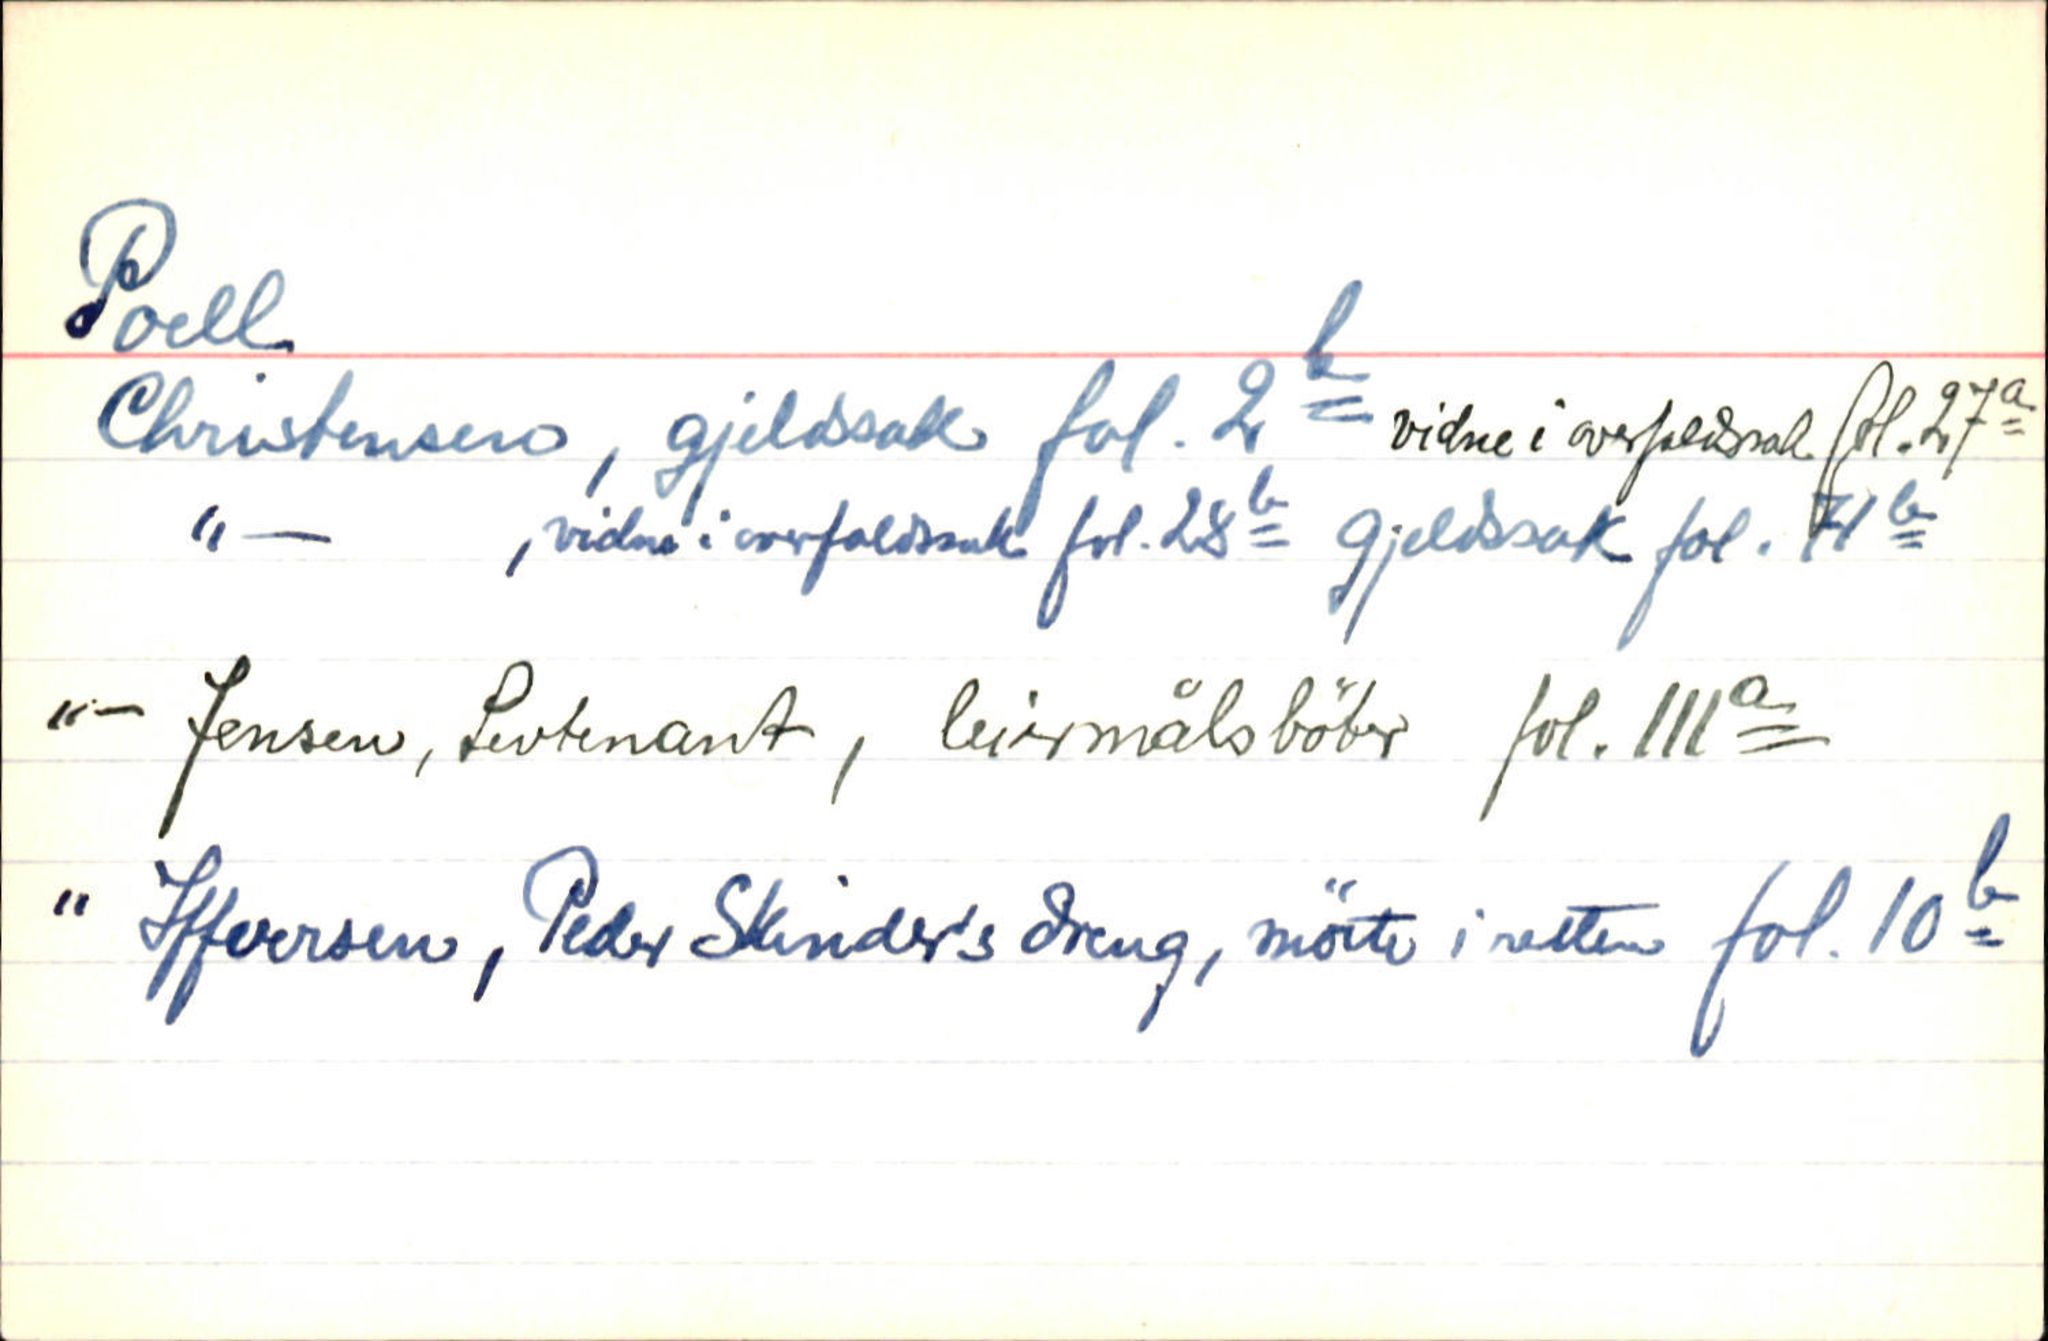 Poell
Christensen, gjeldssak fol. 2b vidne i overfaldssak fol. 27a
"— , vidne i overfaldssak fol. 28b gjeldssak fol. 71b
"— Jensen, Levtenant, leiermålsböter fol. 111a
" Iffversen, Peder Skinder's dreng, mötte i retten fol. 10b